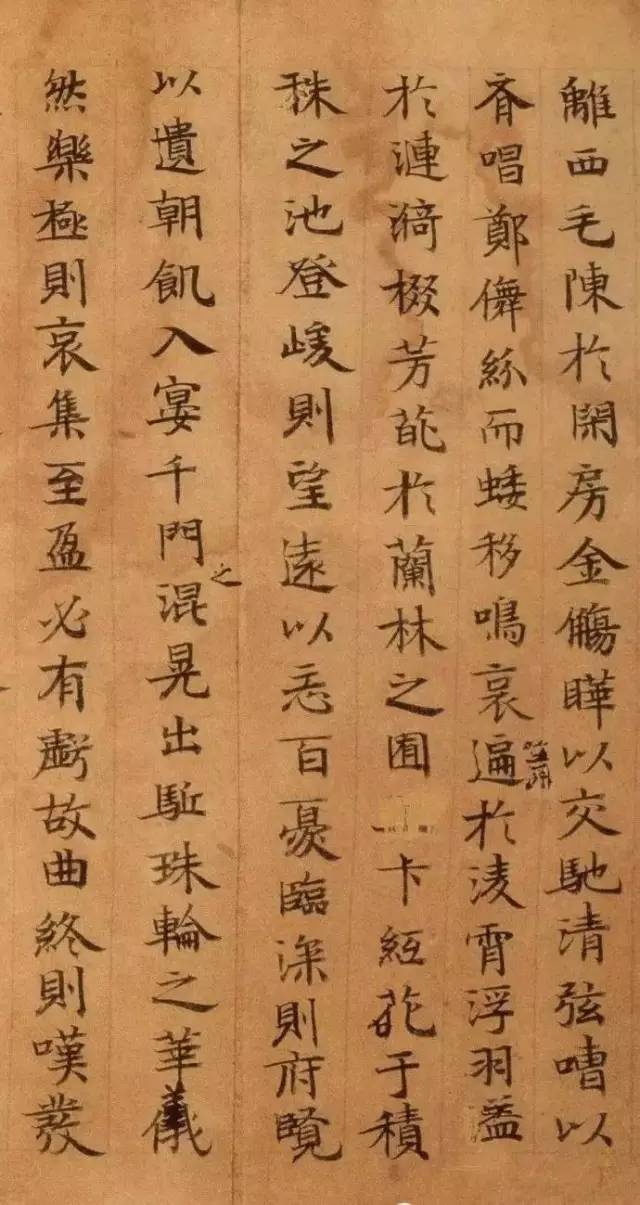 離西毛陳於閑房金觴曄以交馳清弦嘈以
斉唱鄭儛絲而蜲移鳴哀遍於淩霄浮羽盖
於漣漪棳芳花於蘭林之囿卡紅花于積
秼之池登峻則望遠以忘百憂臨深則府覽
以遺朝飢入宴千門之混晃出駈珠輪之華儀
然樂極則哀集至盈必有虧故曲終則嘆發